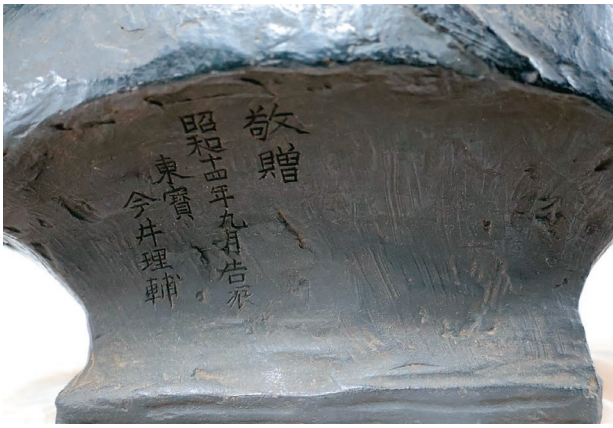 敬贈
昭和十四年九月吉辰
東寶
今井理輔